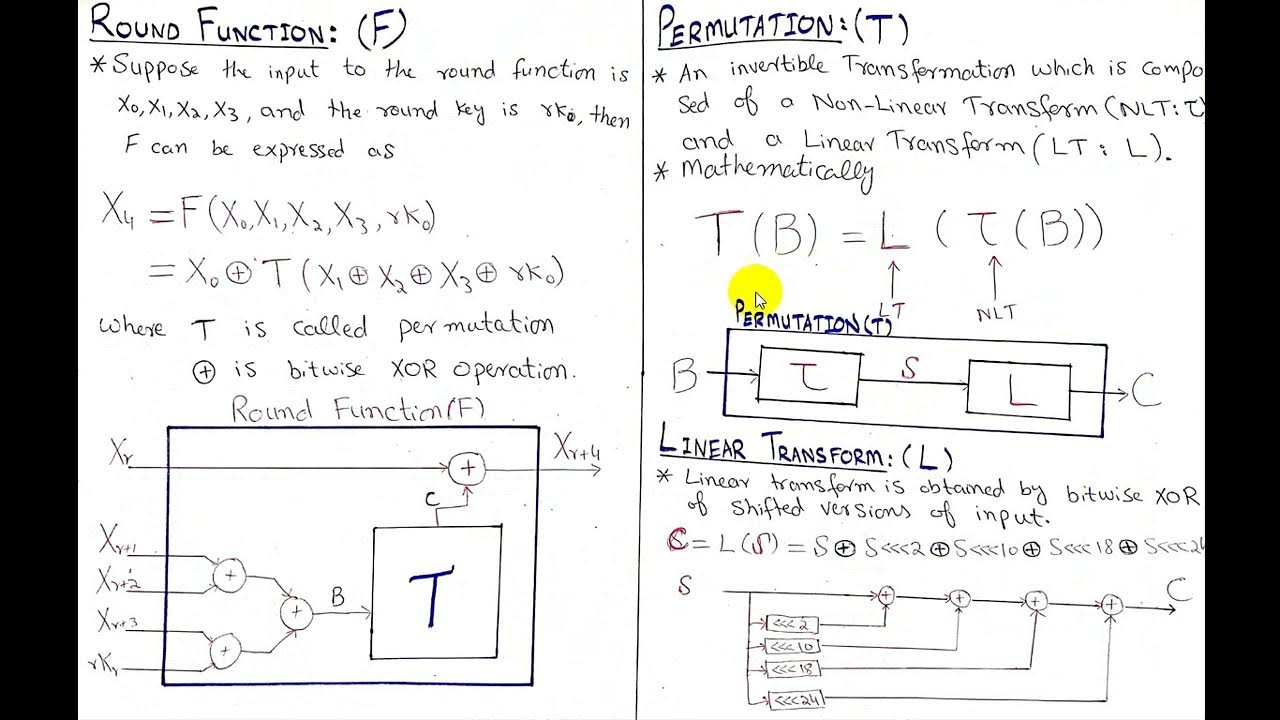 ROUND FUNCTION: (F)
* Suppose the input to the round function is
X₀, X₁, X₂, X₃, and the round key is rk₀, then
F can be expressed as
X₄ = F(X₀, X₁, X₂, X₃, rk₀)
= X₀ ⊕ T (X₁ ⊕ X₂ ⊕ X₃ ⊕ rk₀)
where T is called permutation
⊕ is bitwise XOR operation.
Round Function(F)
Xr
+
Xr+4
C
Xr+1
+
Xr+2
T
B
+
Xr+3
+
rKr
PERMUTATION: (T)
* An invertible Transformation which is compo
sed of a Non-Linear Transform (NLT: τ
and a Linear Transform (LT : L).
* Mathematically
T (B) = L ( τ (B))
LT
NLT
PERMUTATION(T)
B
τ
S
L
C
LINEAR TRANSFORM: (L)
* Linear transform is obtained by bitwise XOR
of shifted versions of input.
C = L(S) = S ⊕ S<<<2 ⊕ S<<<10 ⊕ S<<<18 ⊕ S<<<24
S
+
+
+
+
C
<<<2
<<<10
<<<18
<<<24